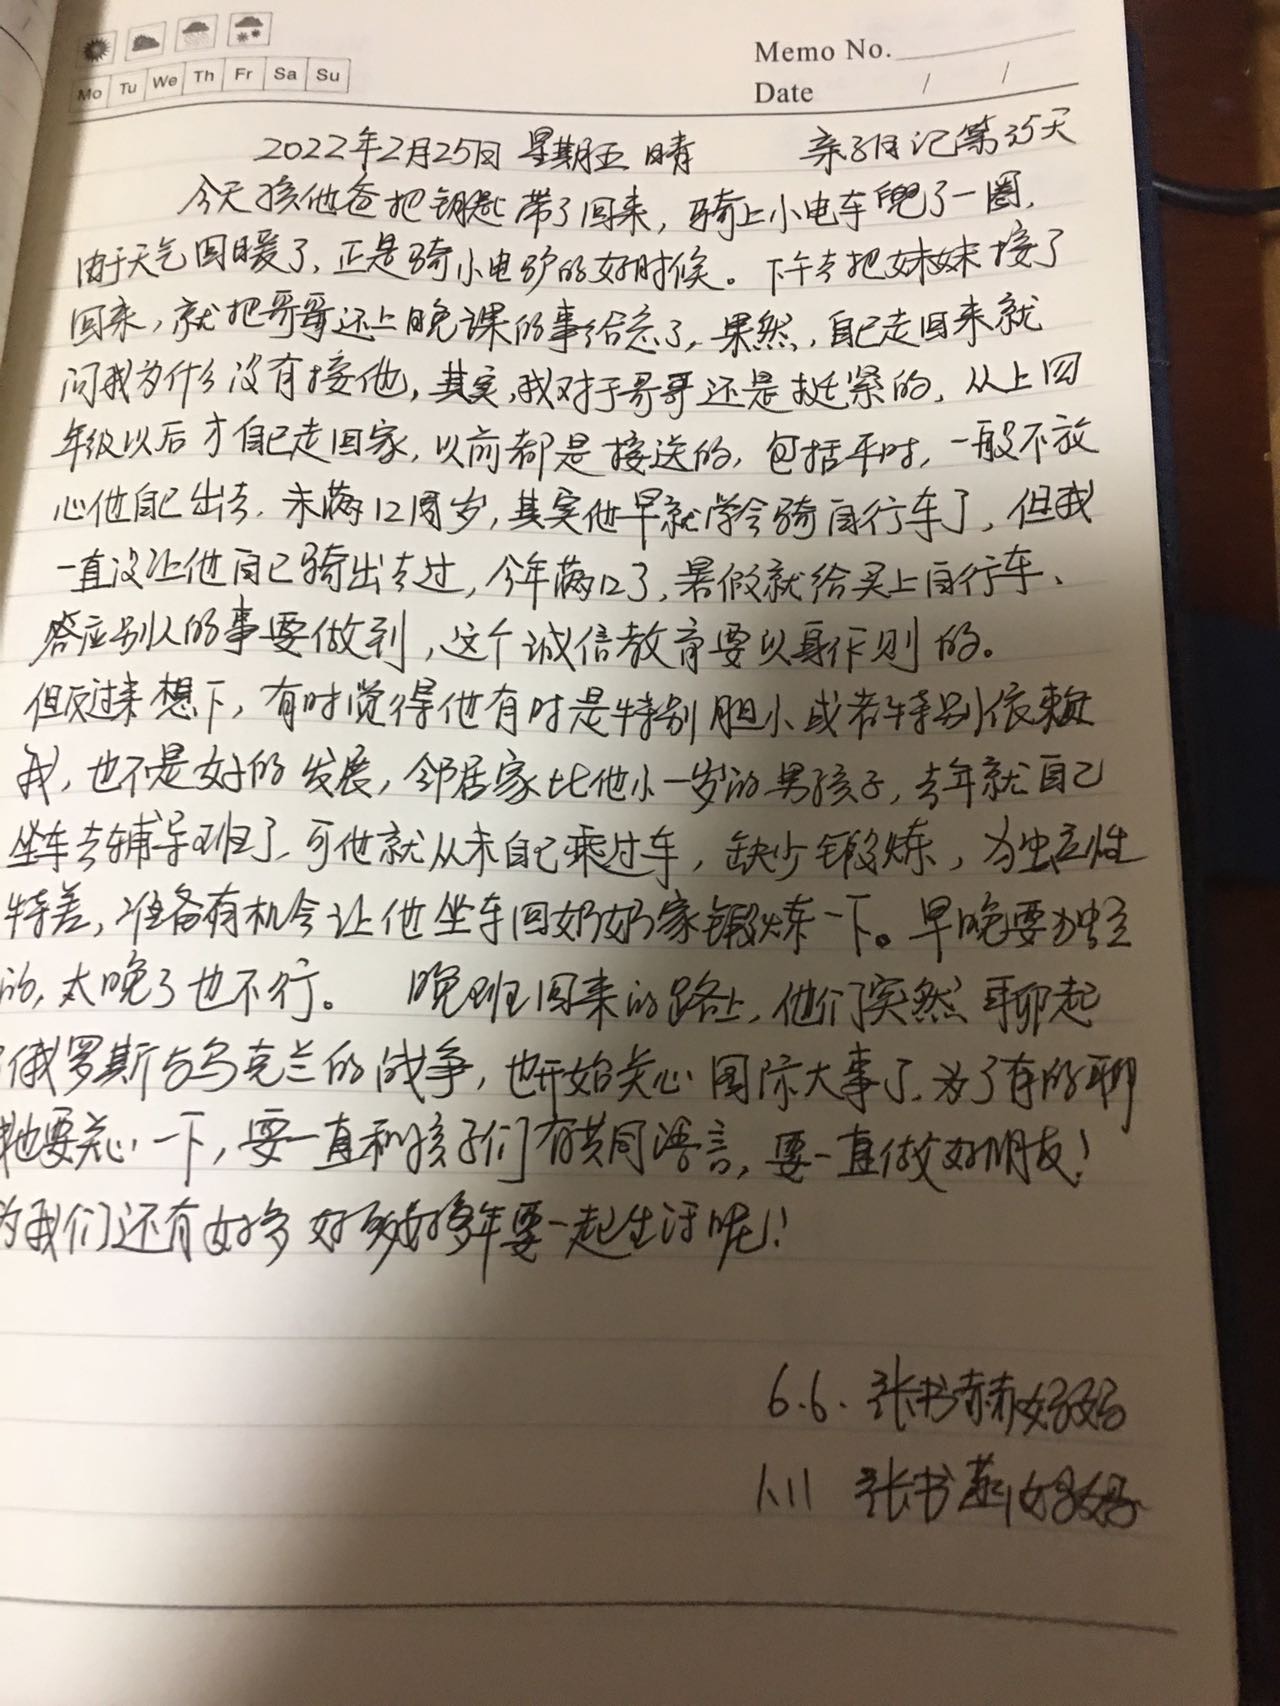 Memo No.
Mo Tu We Th Fr Sa Su
Date / /
2022年2月25日 星期五 晴 亲子日记第35天
今天孩他爸把钥匙带了回来,骑上小电车兜了一圈,
由于天气回暖了,正是骑小电驴的好时候。下午去把妹妹接了
回来,就把哥哥还上晚课的事给忘了,果然,自己走回来就
问我为什么没有接他,其实,我对于哥哥还是挺紧的,从上四
年级以后才自己走回家,以前都是接送的,包括平时,一般不放
心他自己出去,未满12周岁,其实他早就学会骑自行车了,但我
一直没让他自己骑出去过,今年满12了,暑假就给买上自行车、
答应别人的事要做到,这个诚信教育要以身作则的。
但反过来想下,有时觉得他有时是特别胆小或者特别依赖
我,也不是好的发展,邻居家比他小一岁的男孩子,去年就自己
坐车去辅导班了,可他就从未自己乘过车,缺少锻炼,为独立性
特差,准备有机会让他坐车回奶奶家锻炼一下。早晚要独立
的,太晚了也不行。 晚班回来的路上,他们突然聊起
俄罗斯与乌克兰的战争,也开始关心国际大事了,为了有的聊
我也要关心一下,要一直和孩子们有共同语言,要一直做好朋友!
为我们还有好多好多好多年要一起生活呢!
6.6. 张书赫妈妈
1.11 张书 妈妈